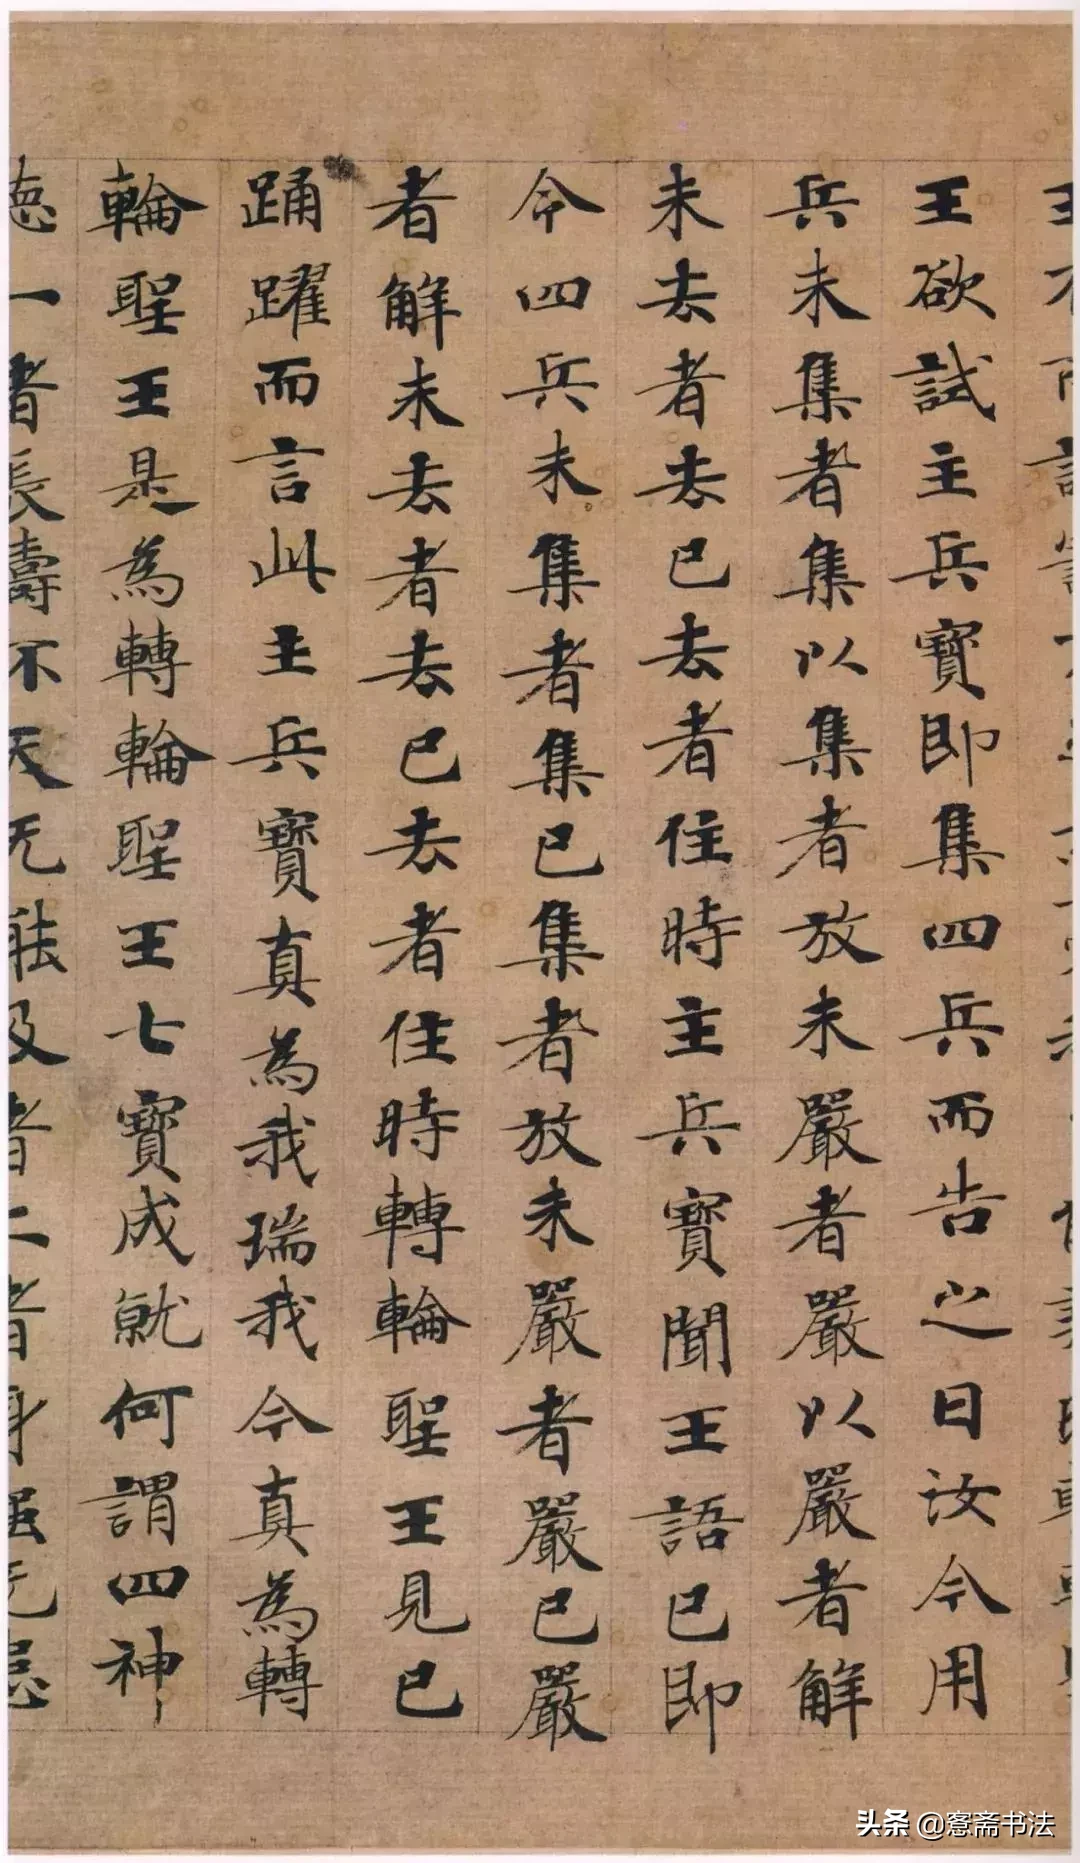 王欲試主兵寶即集四兵而告之曰汝今用
兵未集者集以集者放未嚴者嚴以嚴者解
未去者去已去者住時主兵寶聞王語已即
今四兵未集者集已集者放未嚴者嚴已嚴
者解未去者去已去者住時轉輪聖王見已
踊躍而言此主兵寶真為我瑞我今真為轉
輪聖王是為轉輪聖王七寶成就何謂四神
德一者長壽不夭无能及者二者身强无患
头条 @愙斋书法